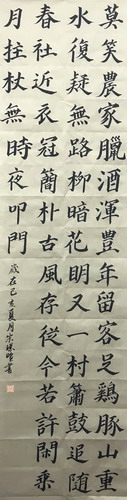 莫笑農家臘酒渾豐年留客足鷄豚山重
水復疑無路柳暗花明又一村簫鼓追隨
春社近衣冠簡朴古風存從今若許閑乘
月拄杖無時夜叩門
歲在己亥夏月宗書